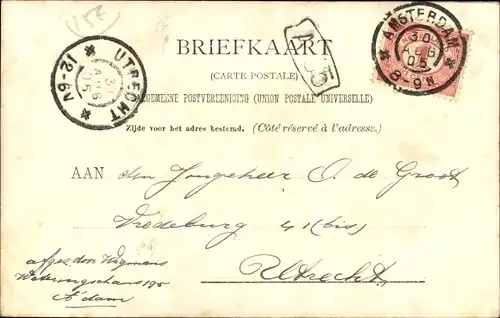 UTRECHT
30
AUG
05
12-6V
AMSTERDAM
30
AUG
05
8-9N
BRIEFKAART
(CARTE POSTALE)
ALGEMEENE POSTVEREENIGING (UNION POSTALE UNIVERSELLE)
Zijde voor het adres bestemd. (Côté réservé à l'adresse.)
AAN den Jongeheer O. de Groot
Vredeburg 41 (bis)
Utrecht
afgez. door Wegmans
Weteringschans 195
A'dam